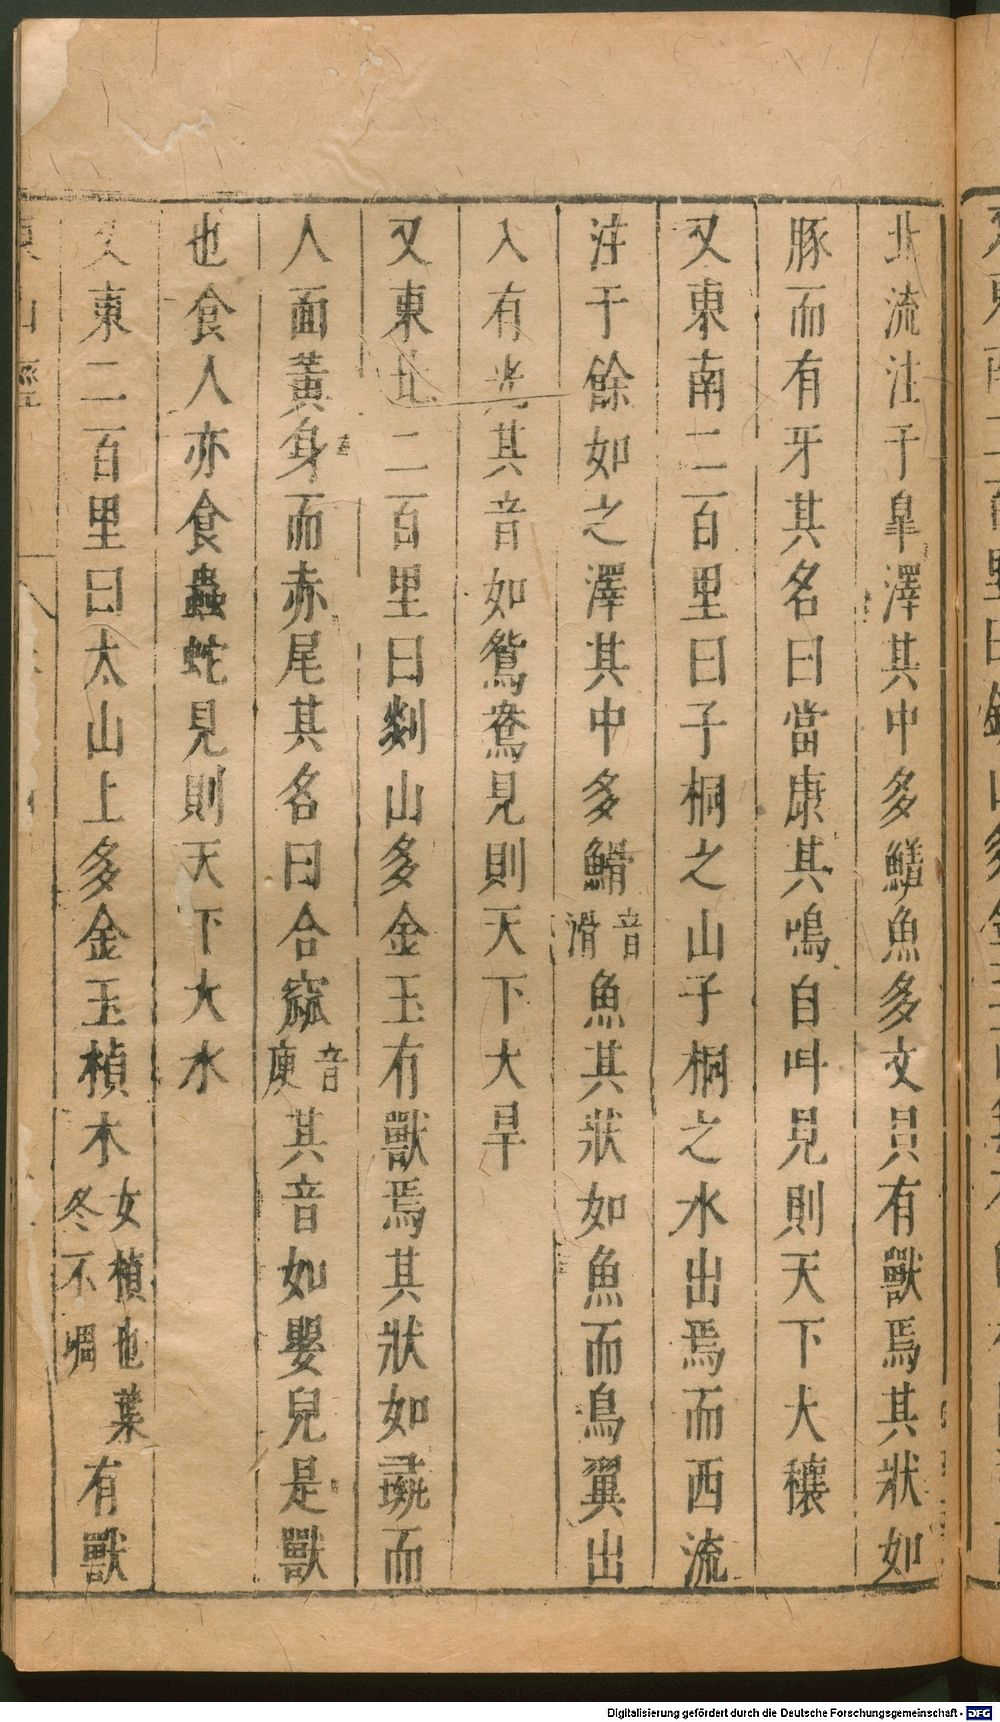 北流注于皐澤其中多鱃魚多文貝有獸焉其狀如
豚而有牙其名曰當康其鳴自叫見則天下大穰
又東南二百里曰子桐之山子桐之水出焉而西流
注于餘如之澤其中多䱻音滑魚其狀如魚而鳥翼出
入有光其音如鴛鴦見則天下大旱
又東北二百里曰剡山多金玉有獸焉其狀如彘而
人面黃身而赤尾其名曰合窳音庾其音如嬰兒是獸
也食人亦食蟲蛇見則天下大水
又東二百里曰太山上多金玉楨木女楨也葉冬不凋有獸
山經
Digitalisierung gefördert durch die Deutsche Forschungsgemeinschaft - DFG